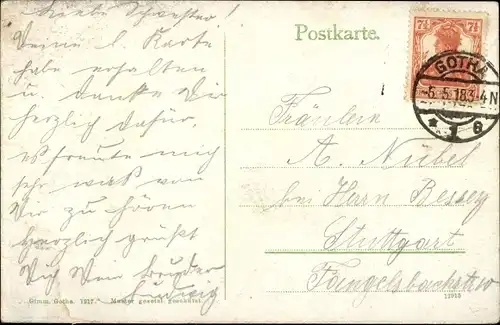 Liebe Schwester!
Deine l. Karte
habe erhalten
u danke Dir
herzlich dafür.
es freute mich
sehr was von
Dir zu hören
Herzlich grüßt
Dich Dein Bruder
Ludwig
Postkarte.
7½ 7½
GOTHA
-5.5.18 3-4N
* 1 e
Fräulein
A. Nübel
bei Herrn Bessey
Stuttgart
Fangelsbachstr
Gimm. Gotha. 1917. Muster gesetzl. geschützt.
12915